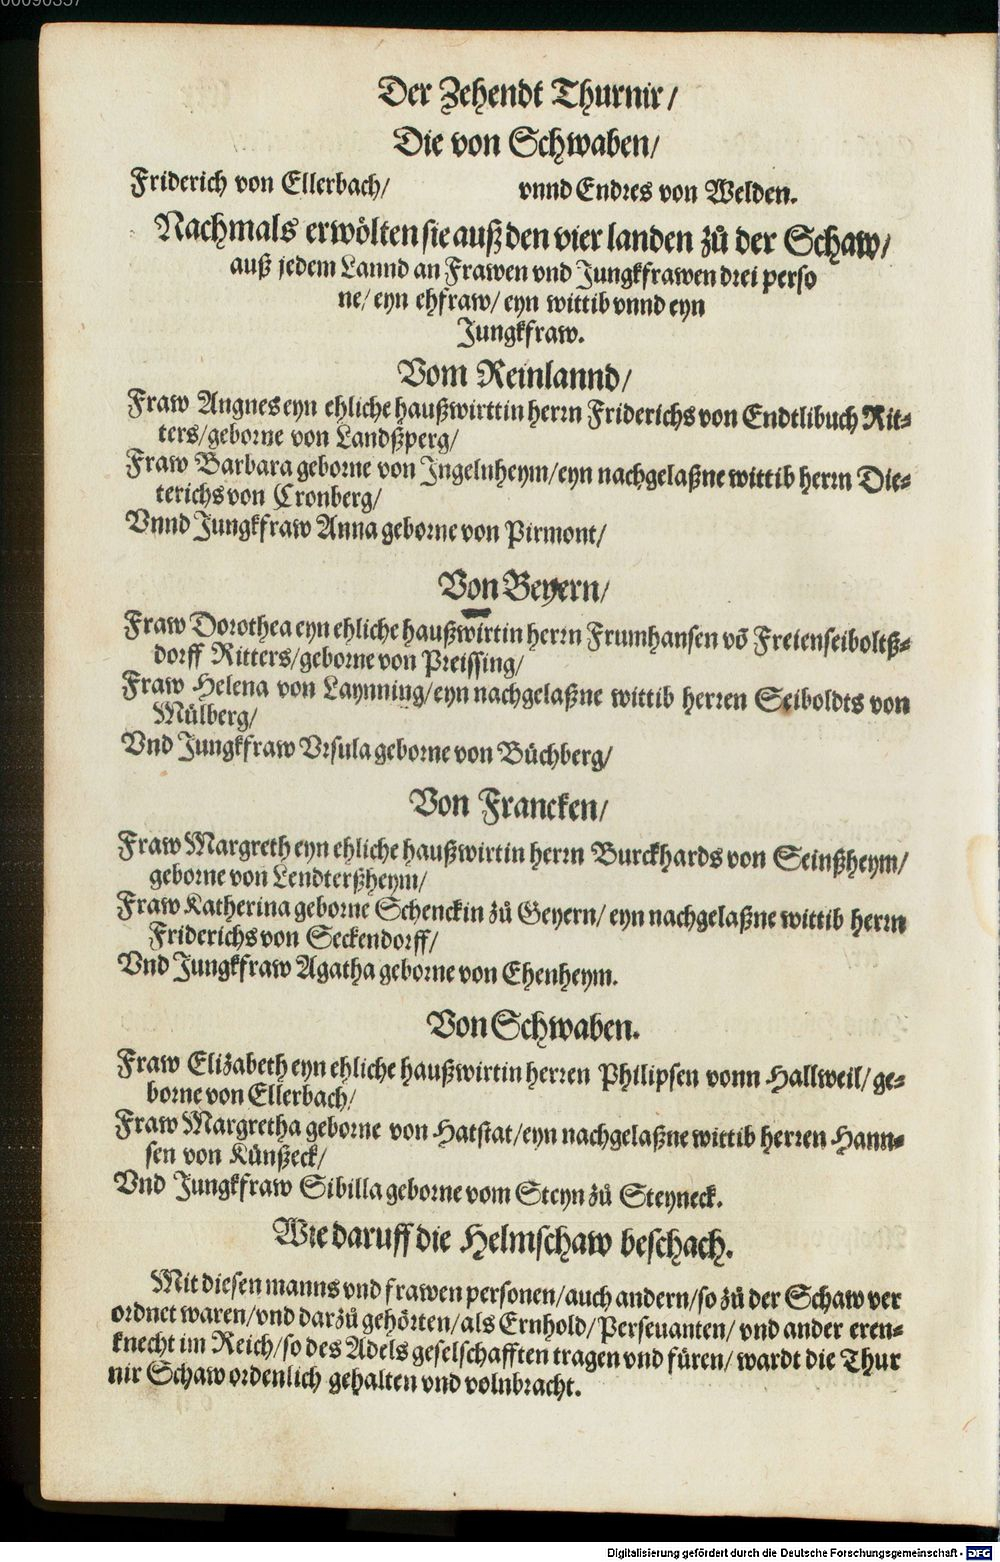 00090357
Der Zehendt Thurnir/
Die von Schwaben/
Friderich von Ellerbach/ vnnd Endres von Welden.
Nachmals erwölten sie auß den vier landen zů der Schaw/
auß jedem Lannd an Frawen vnd Jungkfrawen drei perso
ne/ eyn ehfraw/ eyn wittib vnnd eyn
Jungkfraw.
Vom Reinlannd/
Fraw Angnes eyn ehliche haußwirttin herrn Friderichs von Endtlibuch Rit⸗
ters/geborne von Landßperg/
Fraw Barbara geborne von Ingelnheym/eyn nachgelaßne wittib herrn Die⸗
terichs von Cronberg/
Vnnd Jungkfraw Anna geborne von Pirmont/
Von Beyern/
Fraw Dorothea eyn ehliche haußwirtin herrn Frumhansen võ Freienseiboltß⸗
dorff Ritters/geborne von Preissing/
Fraw Helena von Laynning/eyn nachgelaßne wittib herren Seiboldts von
Mülberg/
Vnd Jungkfraw Vrsula geborne von Bůchberg/
Von Francken/
Fraw Margreth eyn ehliche haußwirtin herrn Burckhards von Seinßheym/
geborne von Lendterßheym/
Fraw Katherina geborne Schenckin zů Geyern/ eyn nachgelaßne wittib herrn
Friderichs von Seckendorff/
Vnd Jungkfraw Agatha geborne von Ehenheym.
Von Schwaben.
Fraw Elizabeth eyn ehliche haußwirtin herren Philipsen vonn Hallweil/ ge⸗
borne von Ellerbach/
Fraw Margretha geborne von Hatstat/eyn nachgelaßne wittib herren Hann⸗
sen von Künßeck/
Vnd Jungkfraw Sibilla geborne vom Steyn zů Steyneck.
Wie daruff die Helmschaw beschach.
Mit diesen manns vnd frawen personen/auch andern/so zů der Schaw ver
ordnet waren/vnd darzů gehörten/als Ernhold/Persevanten/ vnd ander eren⸗
knecht im Reich/so des Adels geselschafften tragen vnd füren/ wardt die Thur
nir Schaw ordenlich gehalten vnd volnbracht.
Digitalisierung gefördert durch die Deutsche Forschungsgemeinschaft - DFG